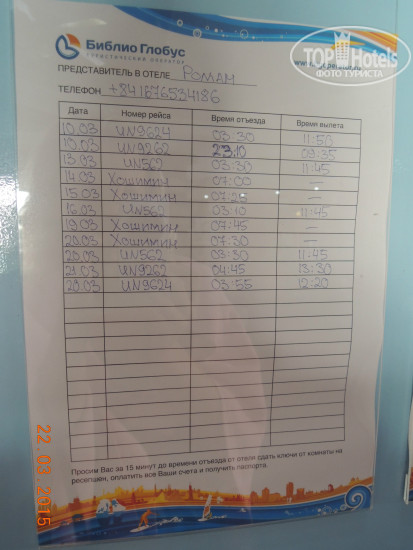 Библио Глобус
ТУРИСТИЧЕСКИЙ ОПЕРАТОР
TOPHotels
ФОТО ТУРИСТА
ПРЕДСТАВИТЕЛЬ В ОТЕЛЕ РОМАН
ТЕЛЕФОН +841676534186
Дата Номер рейса Время отъезда Время вылета
10.03 UN9624 03:30 11:50
10.03 UN9262 23.10 09:35
13.03 UN562 03:30 11:45
14.03 Хошимин 07:00 —
15.03 Хошимин 07:25 —
16.03 UN562 03:10 11:45
19.03 Хошимин 07:45 —
20.03 Хошимин 07:30 —
20.03 UN562 03:30 11:45
21.03 UN9262 04:45 13:30
20.03 UN9624 03:55 12:20
Просим Вас за 15 минут до времени отъезда от отеля сдать ключи от комнаты на
ресепшен, оплатить все Ваши счета и получить паспорта.
22.03.2015